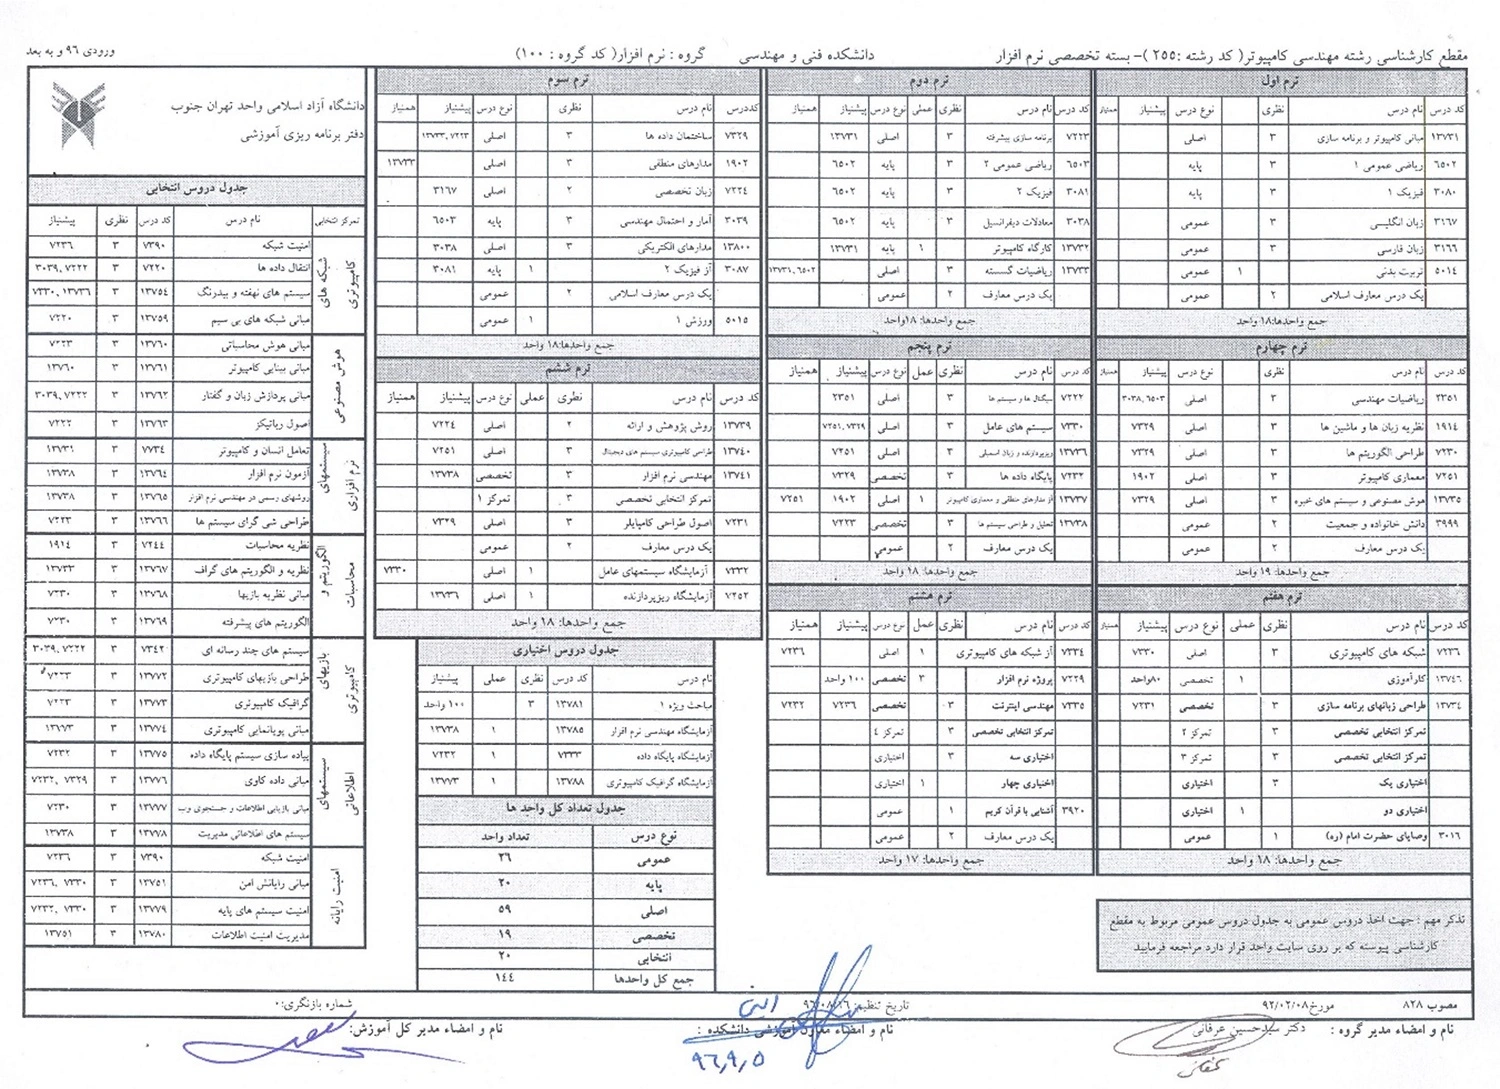 مقطع کارشناسی رشته مهندسی کامپیوتر( کد رشته :۲۵۵ )- بسته تخصصی نرم افزار دانشکده فنی و مهندسی گروه : نرم افزار( کد گروه : ۱۰۰) ورودی ۹۶ و به بعد
ترم اول
کد درس نام درس نظری نوع درس پیشنیاز همنیاز
۱۳۷۳۱ مبانی کامپیوتر و برنامه سازی ۳ اصلی
۶۵۰۲ ریاضی عمومی ۱ ۳ پایه
۳۰۸۰ فیزیک ۱ ۳ پایه
۳۱۶۷ زبان انگلیسی ۳ عمومی
۳۱۶۶ زبان فارسی ۳ عمومی
۵۰۱۴ تربیت بدنی ۱ عمومی
یک درس معارف اسلامی ۲ عمومی
جمع واحدها:۱۸ واحد
ترم دوم
کد درس نام درس نظری عملی نوع درس پیشنیاز همنیاز
۷۲۲۳ برنامه سازی پیشرفته ۳ اصلی ۱۳۷۳۱
۶۵۰۳ ریاضی عمومی ۲ ۳ پایه ۶۵۰۲
۳۰۸۱ فیزیک ۲ ۳ پایه ۶۵۰۲
۳۰۳۸ معادلات دیفرانسیل ۳ پایه ۶۵۰۲
۱۳۷۳۲ کارگاه کامپیوتر ۱ پایه ۱۳۷۳۱
۱۳۷۳۳ ریاضیات گسسته ۳ اصلی ۱۳۷۳۱،۶۵۰۲
یک درس معارف ۲ عمومی
جمع واحدها: ۱۸واحد
ترم سوم
کددرس نام درس نظری نوع درس پیشنیاز همنیاز
۷۳۲۹ ساختمان داده ها ۳ اصلی ۱۳۷۳۳،۷۲۲۳
۱۹۰۲ مدارهای منطقی ۳ اصلی ۱۳۷۳۳
۷۲۲۴ زبان تخصصی ۲ اصلی ۳۱۶۷
۳۰۳۹ آمار و احتمال مهندسی ۳ پایه ۶۵۰۳
۱۳۸۰۰ مدارهای الکتریکی ۳ اصلی ۳۰۳۸
۳۰۸۷ آز فیزیک ۲ ۱ پایه ۳۰۸۱
یک درس معارف اسلامی ۲ عمومی
۵۰۱۵ ورزش ۱ ۱ عمومی
جمع واحدها:۱۸ واحد
ترم چهارم
کد درس نام درس نظری نوع درس پیشنیاز همنیاز
۲۳۵۱ ریاضیات مهندسی ۳ اصلی ۳۰۳۸،۶۵۰۳
۱۹۱۴ نظریه زبان ها و ماشین ها ۳ اصلی ۷۳۲۹
۷۲۳۰ طراحی الگوریتم ها ۳ اصلی ۷۳۲۹
۷۲۵۱ معماری کامپیوتر ۳ اصلی ۱۹۰۲
۱۳۷۳۵ هوش مصنوعی و سیستم های خبره ۳ اصلی ۷۳۲۹
۳۹۹۹ دانش خانواده و جمعیت ۲ عمومی
یک درس معارف ۲ عمومی
جمع واحدها: ۱۹ واحد
ترم پنجم
کد درس نام درس نظری عمل نوع درس پیشنیاز همنیاز
۷۲۲۲ سیگنال ها و سیستم ها ۳ اصلی ۲۳۵۱
۷۳۳۰ سیستم های عامل ۳ اصلی ۷۲۵۱،۷۳۲۹
۱۳۷۳۶ ریزپردازنده و زبان اسمبلی ۳ اصلی ۷۲۵۱
۷۲۳۲ پایگاه داده ها ۳ تخصصی ۷۳۲۹
۱۳۷۳۷ آز مدارهای منطقی و معماری کامپیوتر ۱ اصلی ۱۹۰۲ ۷۲۵۱
۱۳۷۳۸ تحلیل و طراحی سیستم ها ۳ تخصصی ۷۲۲۳
یک درس معارف ۲ عمومی
جمع واحدها: ۱۸ واحد
ترم ششم
کد درس نام درس نظری عملی نوع درس پیشنیاز همنیاز
۱۳۷۳۹ روش پژوهش و ارائه ۲ اصلی ۷۲۲۴
۱۳۷۴۰ طراحی کامپیوتری سیستم های دیجیتال ۳ اصلی ۷۲۵۱
۱۳۷۴۱ مهندسی نرم افزار ۳ تخصصی ۱۳۷۳۸
تمرکز انتخابی تخصصی ۳ تمرکز ۱
۷۲۳۱ اصول طراحی کامپایلر ۳ اصلی ۷۳۲۹
یک درس معارف ۲ عمومی
۷۳۳۲ آزمایشگاه سیستمهای عامل ۱ اصلی ۷۳۳۰
۷۲۵۲ آزمایشگاه ریزپردازنده ۱ اصلی ۱۳۷۳۶
جمع واحدها: ۱۸ واحد
ترم هفتم
کد درس نام درس نظری عملی نوع درس پیشنیاز همنیاز
۷۲۳۶ شبکه های کامپیوتری ۳ اصلی ۷۳۳۰
۱۳۷۴۶ کارآموزی ۱ تخصصی ۸۰واحد
۱۳۷۳۴ طراحی زبانهای برنامه سازی ۳ تخصصی ۷۲۳۱
تمرکز انتخابی تخصصی ۳ تمرکز ۲
تمرکز انتخابی تخصصی ۳ تمرکز ۳
اختیاری یک ۳ اختیاری
اختیاری دو ۱ اختیاری
۳۰۱۶ وصایای حضرت امام (ره) ۱ عمومی
جمع واحدها: ۱۸ واحد
ترم هشتم
کد درس نام درس نظری عمل نوع درس پیشنیاز همنیاز
۷۳۳۴ آز شبکه های کامپیوتری ۱ اصلی ۷۲۳۶
۷۲۲۹ پروژه نرم افزار ۳ تخصصی ۱۰۰ واحد
۷۳۳۵ مهندسی اینترنت ۳ تخصصی ۷۲۳۶ ۷۲۳۲
تمرکز انتخابی تخصصی ۳ تمرکز ٤
اختیاری سه ۳ اختیاری
اختیاری چهار ۱ اختیاری
۳۹۲۰ آشنایی با قرآن کریم ۱ عمومی
یک درس معارف ۲ عمومی
جمع واحدها: ۱۷ واحد
جدول دروس اختیاری
نام درس کد درس نظری عملی پیشنیاز
مباحث ویژه ۱ ۱۳۷۸۱ ۳ ۱۰۰ واحد
آزمایشگاه مهندسی نرم افزار ۱۳۷۸۵ ۱ ۱۳۷۳۸
آزمایشگاه پایگاه داده ۷۳۳۳ ۱ ۷۲۳۲
آزمایشگاه گرافیک کامپیوتری ۱۳۷۸۸ ۱ ۱۳۷۷۳
جدول تعداد کل واحد ها
نوع درس تعداد واحد
عمومی ۲۶
پایه ۲۰
اصلی ۵۹
تخصصی ۱۹
انتخابی ۲۰
جمع کل واحدها ۱٤٤
دانشگاه آزاد اسلامی واحد تهران جنوب
دفتر برنامه ریزی آموزشی
جدول دروس انتخابی
تمرکز انتخابی نام درس کد درس نظری پیشنیاز
شبکه های کامپیوتری
امنیت شبکه ۷۳۹۰ ۳ ۷۲۳۶
انتقال داده ها ۷۲۲۰ ۳ ۳۰۳۹،۷۲۲۲
سیستم های نهفته و بیدرنگ ۱۳۷۵۴ ۳ ۷۳۳۰،۱۳۷۳۶
مبانی شبکه های بی سیم ۱۳۷۵۹ ۳ ۷۲۲۰
هوش مصنوعی
مبانی هوش محاسباتی ۱۳۷۶۰ ۳ ۷۲۲۳
مبانی بینایی کامپیوتر ۱۳۷۶۱ ۳ ۱۳۷۶۰
مبانی پردازش زبان و گفتار ۱۳۷۶۲ ۳ ۳۰۳۹،۷۲۲۲
اصول رباتیکز ۱۳۷۶۳ ۳ ۷۲۲۲
سیستمهای نرم افزاری
تعامل انسان و کامپیوتر ۷۷۳۴ ۳ ۱۳۷۳۱
آزمون نرم افزار ۱۳۷۶۴ ۳ ۱۳۷۳۸
روشهای رسمی در مهندسی نرم افزار ۱۳۷۶۵ ۳ ۱۳۷۳۸
طراحی شی گرای سیستم ها ۱۳۷۶۶ ۳ ۷۲۲۳
الگوریتم و محاسبات
نظریه محاسبات ۷۲۴۴ ۳ ۱۹۱۴
نظریه و الگوریتم های گراف ۱۳۷۶۷ ۳ ۱۳۷۳۳
مبانی نظریه بازیها ۱۳۷۶۸ ۳ ۷۲۳۰
الگوریتم های پیشرفته ۱۳۷۶۹ ۳ ۷۲۳۰
بازیهای کامپیوتری
سیستم های چند رسانه ای ۷۳۴۲ ۳ ۳۰۳۹،۷۲۲۲
طراحی بازیهای کامپیوتری ۱۳۷۷۲ ۳ ۷۲۲۳
گرافیک کامپیوتری ۱۳۷۷۳ ۳ ۷۲۲۳
مبانی پویانمایی کامپیوتری ۱۳۷۷۴ ۳ ۱۳۷۷۳
سیستمهای اطلاعاتی
پیاده سازی سیستم پایگاه داده ۱۳۷۷۵ ۳ ۷۲۳۲
مبانی داده کاوی ۱۳۷۷۶ ۳ ۷۲۳۲، ۷۳۲۹
مبانی بازیابی اطلاعات و جستجوی وب ۱۳۷۷۷ ۳ ۷۲۳۰
سیستم های اطلاعاتی مدیریت ۱۳۷۷۸ ۳ ۱۳۷۳۸
امنیت رایانه
امنیت شبکه ۷۳۹۰ ۳ ۷۲۳۶
مبانی رایانش امن ۱۳۷۵۱ ۳ ۷۲۳۶، ۷۳۳۰
امنیت سیستم های پایه ۱۳۷۷۹ ۳ ۷۲۳۲، ۷۳۳۰
مدیریت امنیت اطلاعات ۱۳۷۸۰ ۳ ۱۳۷۵۱
تذکر مهم : جهت اخذ دروس عمومی به جدول دروس عمومی مربوط به مقطع
کارشناسی پیوسته که بر روی سایت واحد قرار دارد مراجعه فرمایید
مصوب ۸۲۸ مورخ۹۲/۰۲/۰۸ تاریخ تنظیم: ۹۶/۰۸/۱۶ شماره بازنگری:۰
نام و امضاء مدیر گروه : دکتر سیدحسین عرفانی نام و امضاء معاون آموزشی دانشکده : نام و امضاء مدیر کل آموزش:
۹۶,۹,۵